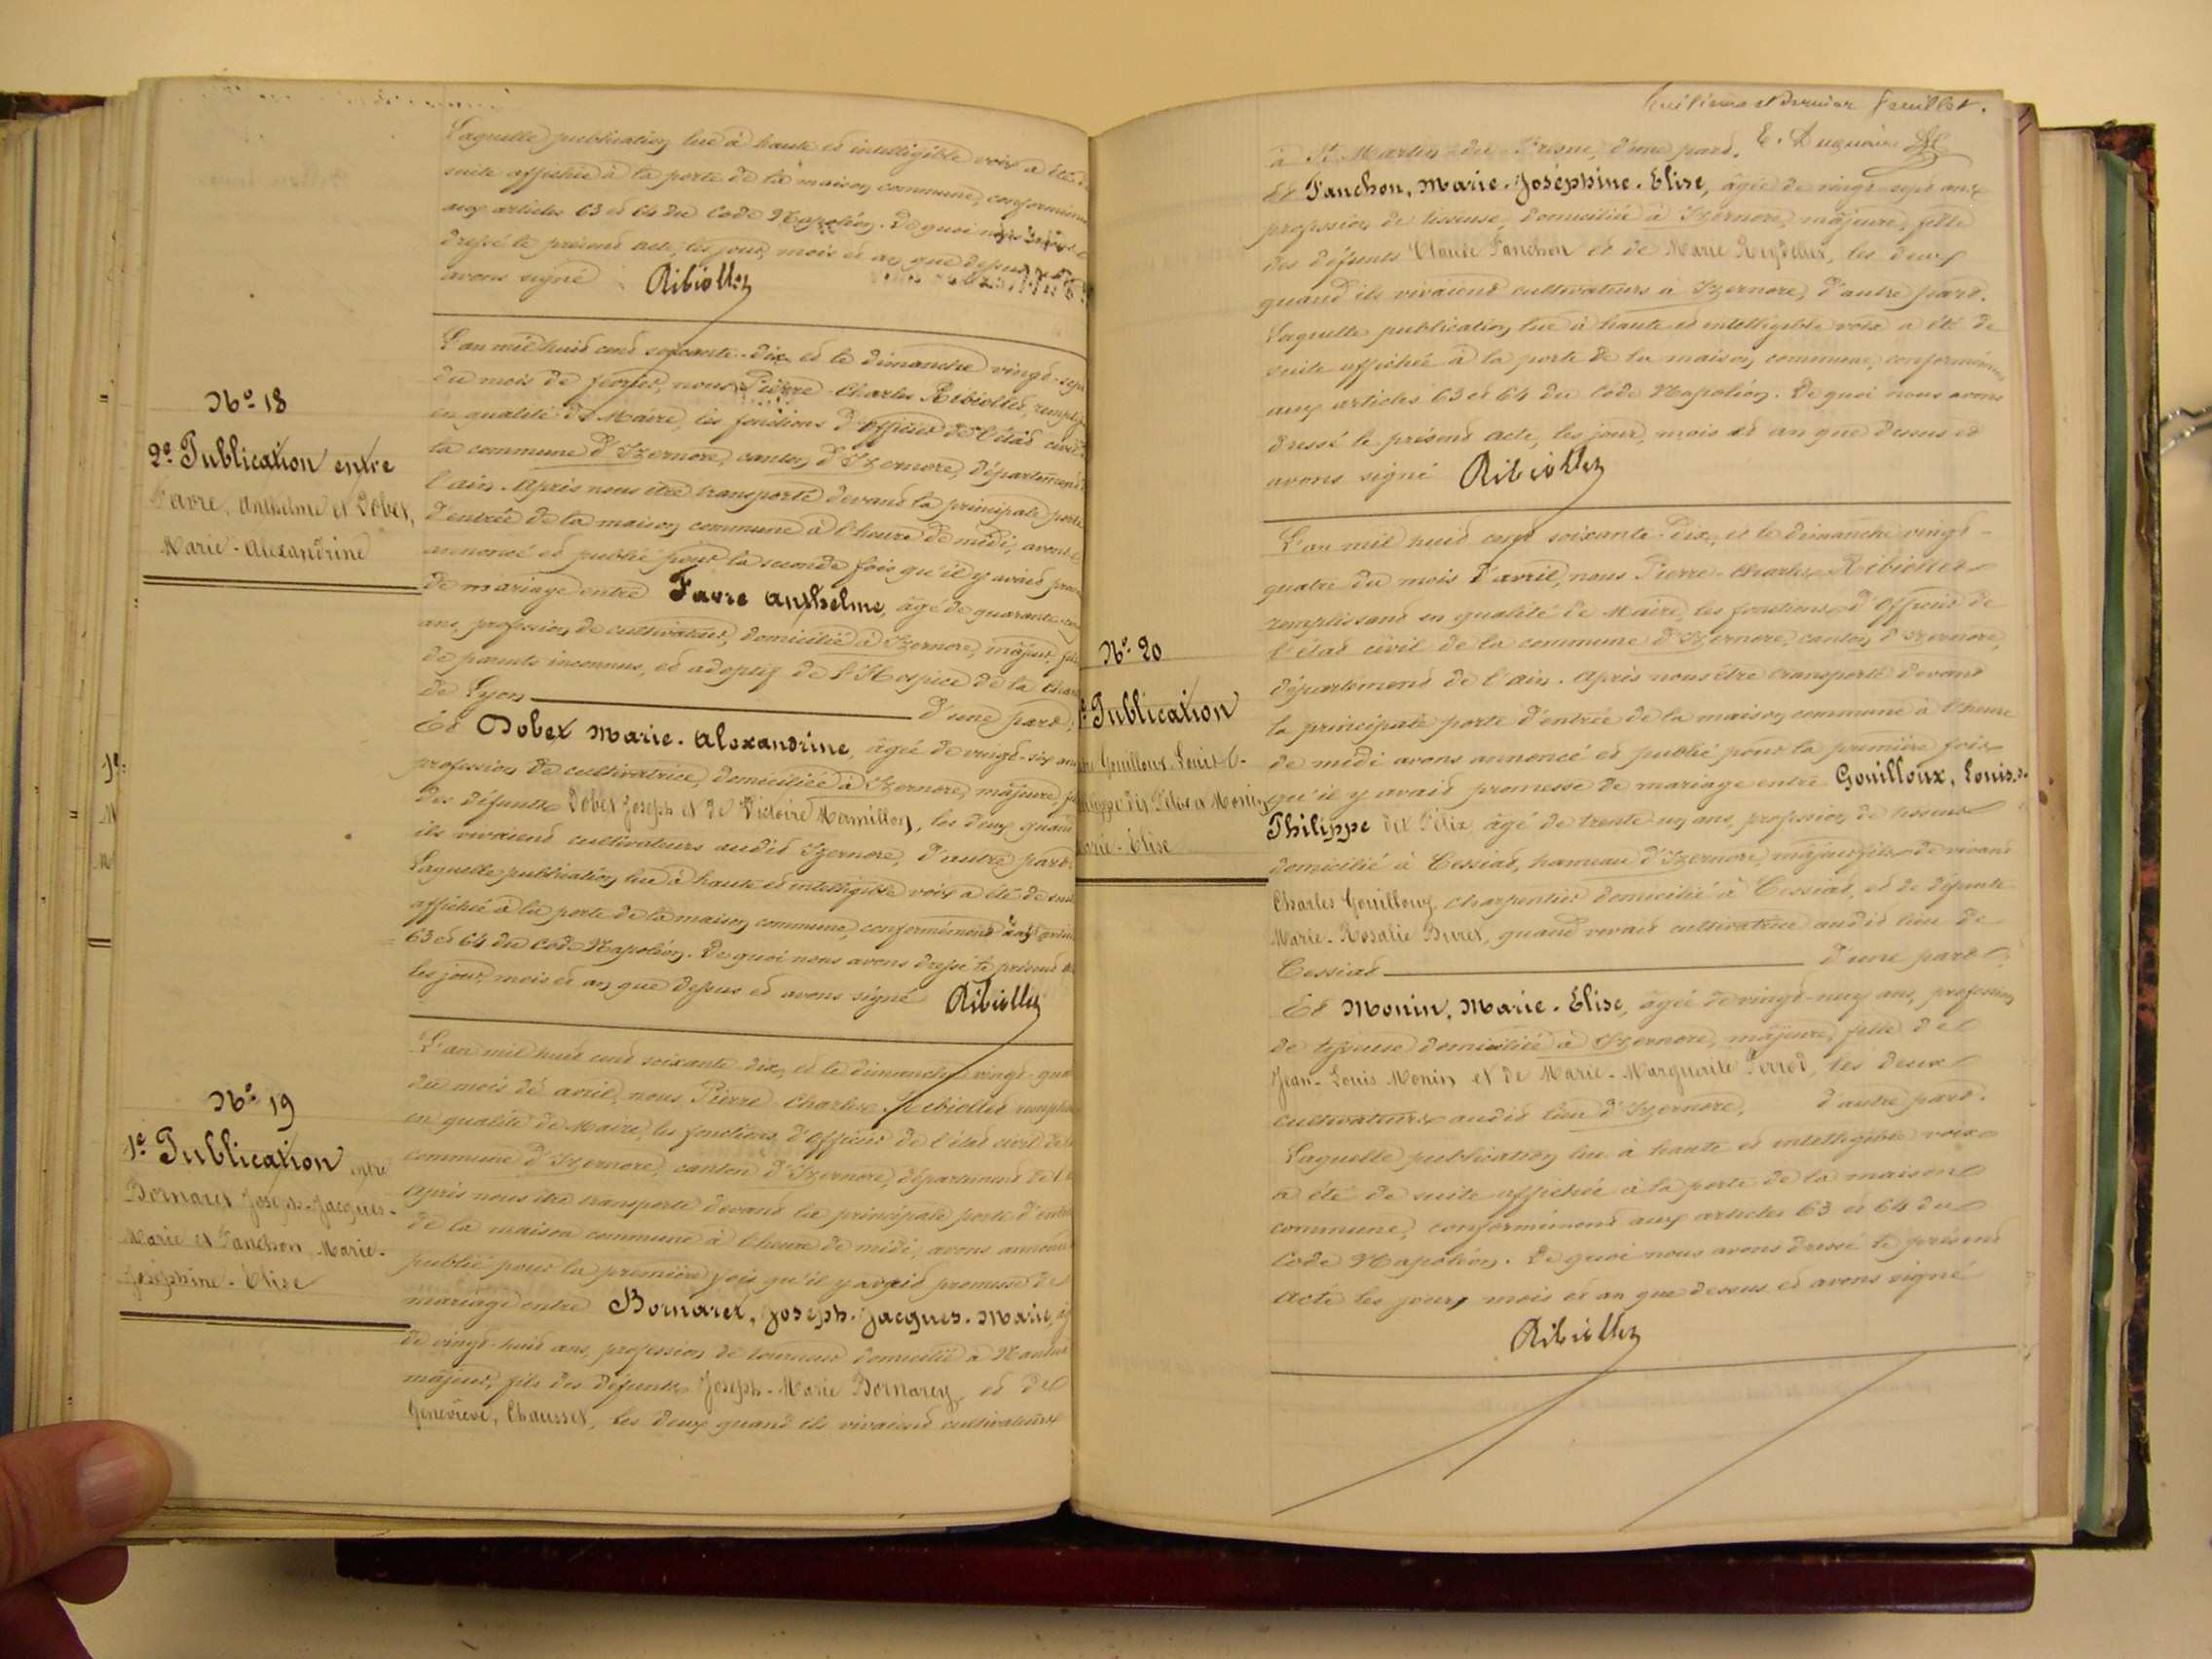 Laquelle publication lue à haute et intelligible voix a été de
suite affichée à la porte de la maison commune, conformément
aux articles 63 et 64 du Code Napoléon. De quoi nous avons
dressé le présent acte, les jour, mois et an que dessus et
avons signé Ribiollet
N° 18
2e Publication entre
Favre, Anthelme et Dobet,
Marie-Alexandrine
L'an mil huit cent soixante-dix et le dimanche vingt-sept
du mois de février, nous Pierre Charles Ribiollet, rempliss
en qualité de Maire, les fonctions d'officier de l'état civil
la commune d'Izernore, canton d'Izernore, département
l'ain. Après nous être transporté devant la principale porte
d'entrée de la maison commune à l'heure de midi, avons
annoncé et publié pour la seconde fois qu'il y avait prom
de mariage entre Favre Anthelme, âgé de quarante
ans, profession de cultivateur, domicilié à Izernore, majeur, fils
de parents inconnus, et adoptif de l'Hospice de la Char
de Lyon d'une part,
Et Dobet Marie-Alexandrine, âgée de vingt-six ans
profession de cultivatrice, domiciliée à Izernore, majeure,
des défunts Dobet Joseph et de Victoire Mermillon, les deux quand
ils vivaient cultivateurs audit Izernore, d'autre part.
Laquelle publication lue à haute et intelligible voix a été de suite
affichée à la porte de la maison commune, conformément aux articles
63 et 64 du Code Napoléon. De quoi nous avons dressé le présent
les jour, mois et an que dessus et avons signé Ribiollet
N° 19
1e Publication entre
Bornaret Joseph-Jacques-
Marie et Fanchon, Marie-
Joséphine-Elise
L'an mil huit cent soixante dix, et le dimanche vingt-qua
du mois de avril, nous Pierre Charles Ribiollet rempliss
en qualité de Maire, les fonctions d'officier de l'état civil de
commune d'Izernore, canton d'Izernore, département de l'
Après nous être transporté devant la principale porte d'entrée
de la maison commune à l'heure de midi, avons annoncé
publié pour la première fois qu'il y avait promesse de
mariage entre Bornaret, Joseph-Jacques-Marie,
de vingt-huit ans, profession de tourneur domicilié à
majeur, fils des défunts Joseph-Marie Bornaret et de
Geneviève, Chausset, les deux quand ils vivaient cultivateurs
huitième et dernier feuillet.
à St Martin-du-Fresne, d'une part.
Et Fanchon, Marie-Joséphine-Elise, âgée de vingt-sept ans
profession de tisseuse, domiciliée à Izernore, majeure, fille
des défunts Claude Fanchon et de Marie Reydellet, les deux
quand ils vivaient cultivateurs à Izernore, d'autre part.
Laquelle publication lue à haute et intelligible voix a été de
suite affichée à la porte de la maison commune, conformément
aux articles 63 et 64 du Code Napoléon. De quoi nous avons
dressé le présent acte, les jour, mois et an que dessus et
avons signé Ribiollet
N° 20
1e Publication
Gouilloux, Louis-
Philippe dit Félix et Monin
Marie-Elise
L'an mil huit cent soixante-dix, et le dimanche vingt-
quatre du mois d'avril, nous Pierre-Charles Ribiollet
remplissant en qualité de Maire, les fonctions d'officier de
l'état civil de la commune d'Izernore, canton d'Izernore,
département de l'ain. Après nous être transporté devant
la principale porte d'entrée de la maison commune à l'heure
de midi avons annoncé et publié pour la première fois
qu'il y avait promesse de mariage entre Gouilloux, Louis-
Philippe dit Félix âgé de trente un ans, profession de tisseur
domicilié à Cessiat, hameau d'Izernore, majeur fils de vivant
Charles Gouilloux, charpentier domicilié à Cessiat, et de défunte
Marie-Rosalie Buret, quand vivait cultivatrice audit lieu de
Cessiat d'une part
Et Monin, Marie-Elise, âgée de vingt-neuf ans, profession
de tisseuse domiciliée à Izernore, majeure, fille de
Jean-Louis Monin et de Marie-Marguerite Perrod, les deux
cultivateurs audit lieu d'Izernore, d'autre part.
Laquelle publication lue à haute et intelligible voix
a été de suite affichée à la porte de la maison
commune, conformément aux articles 63 et 64 du
Code Napoléon. De quoi nous avons dressé le présent
acte les jour, mois et an que dessus et avons signé
Ribiollet